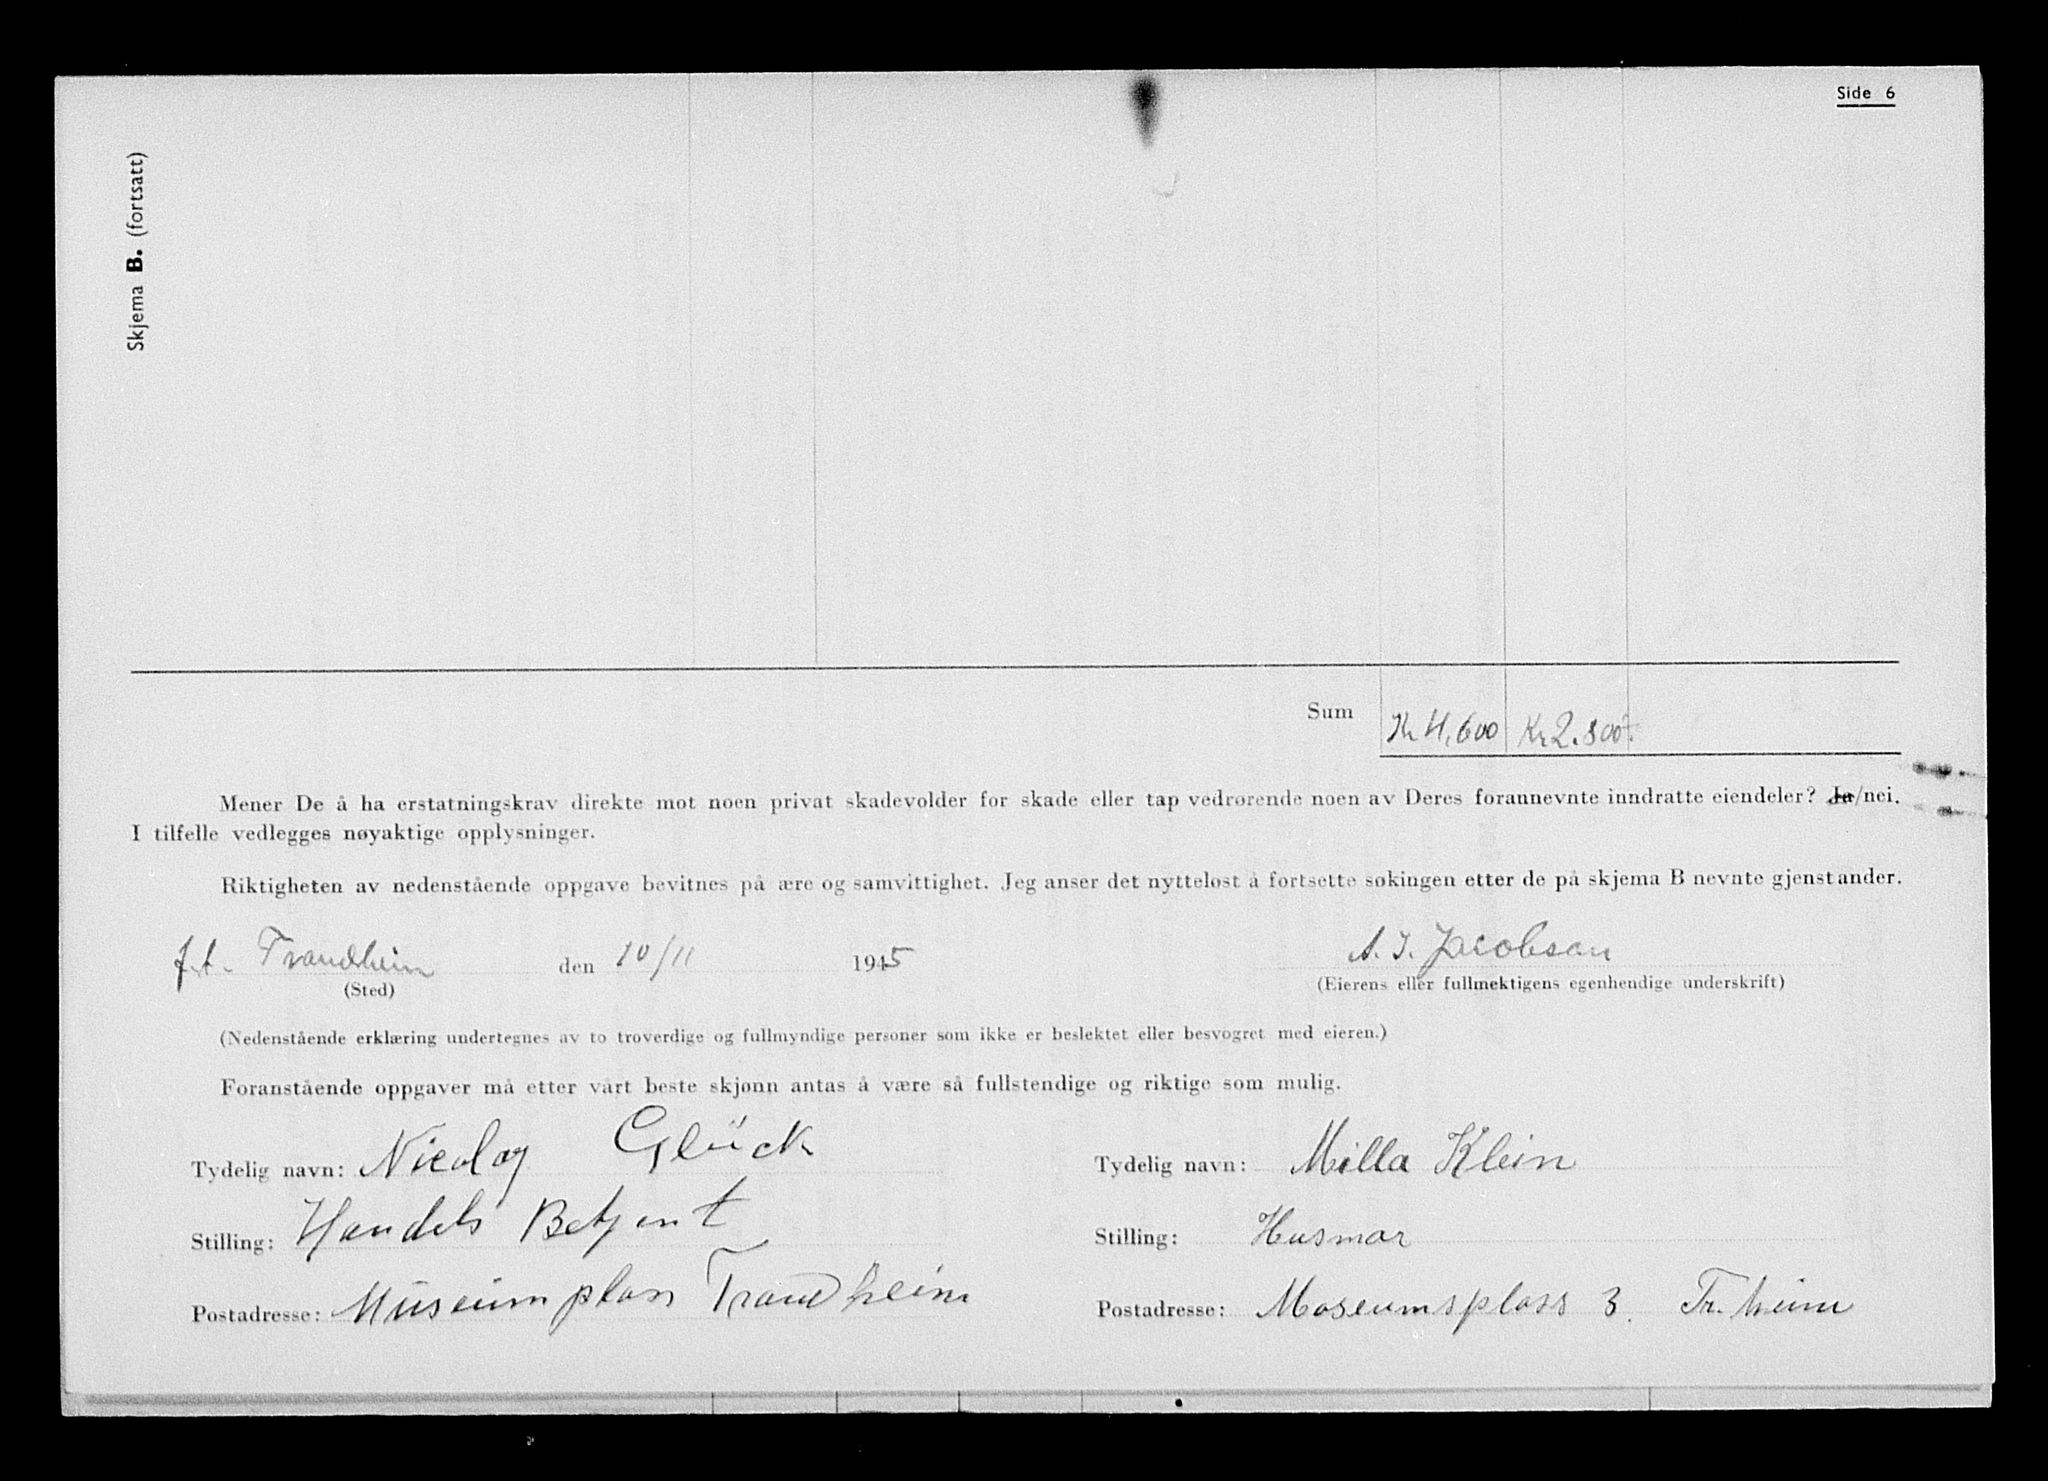 Side 6
Skjema B. (fortsatt)
Sum Kr 4,600 Kr 2.800.
Mener De å ha erstatningskrav direkte mot noen privat skadevolder for skade eller tap vedrørende noen av Deres forannevnte inndratte eiendeler? Ja/nei.
I tilfelle vedlegges nøyaktige opplysninger.
Riktigheten av nedenstående oppgave bevitnes på ære og samvittighet. Jeg anser det nytteløst å fortsette søkingen etter de på skjema B nevnte gjenstander.
f.t. Trondheim den 10/11 1945 A. I. Jacobson
(Sted) (Eierens eller fullmektigens egenhendige underskrift)
(Nedenstående erklæring undertegnes av to troverdige og fullmyndige personer som ikke er beslektet eller besvogret med eieren.)
Foranstående oppgaver må etter vårt beste skjønn antas å være så fullstendige og riktige som mulig.
Tydelig navn: Nicolay Glück Tydelig navn: Milla Klein
Stilling: Handels Betjent Stilling: Husmor
Postadresse: Museumplass Trondheim Postadresse: Moseumsplass 3. Tr.heim